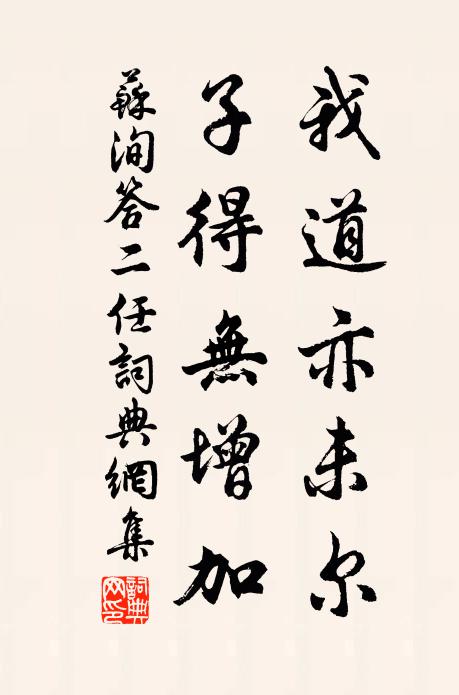 我道亦未尔
子得無增加
蘇洵答二任詞典網集
詞典网印